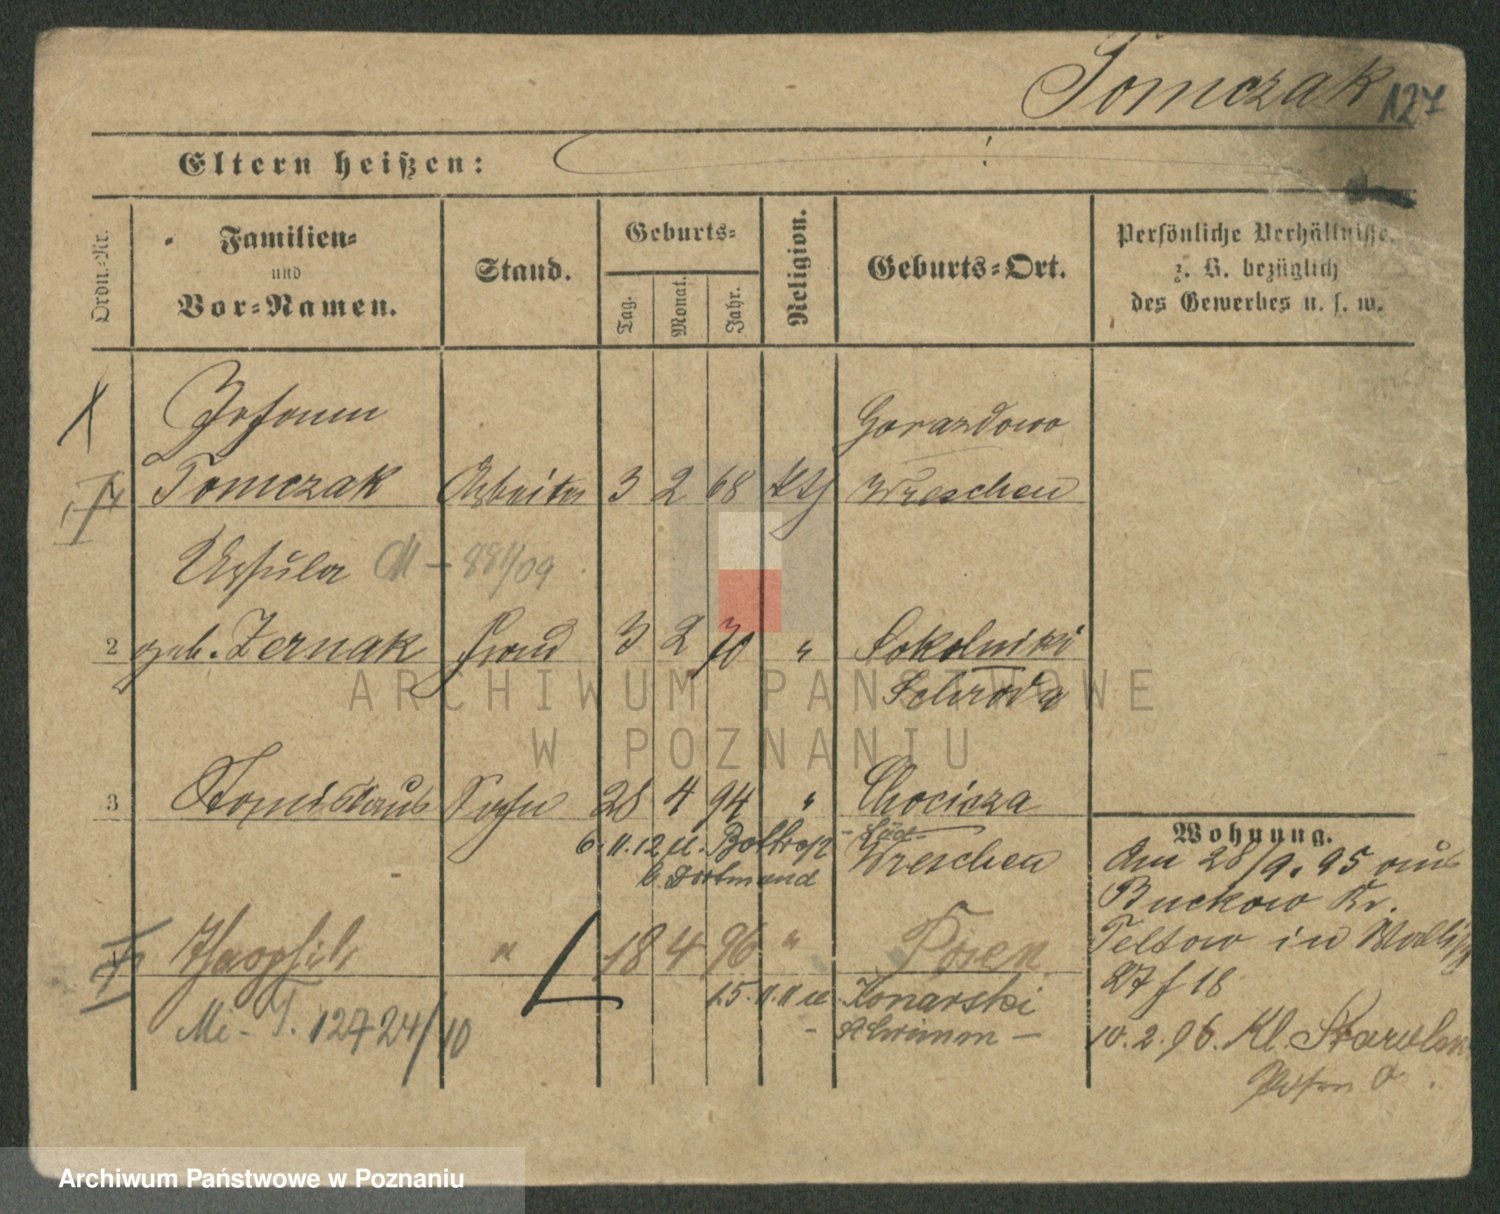 Tomczak 127
Eltern heißen:
Ordn.-Nr.
Familien-
und
Vor-Namen.
Stand.
Geburts-
Tag.
Monat.
Jahr.
Religion.
Geburts-Ort.
Persönliche Verhältnisse,
z. B. bezüglich
des Gewerbes u. s. w.
Johann
Tomczak Arbeiter 3 2 68 kth
Gorazdowo
Wreschen
Ursula M - 881/09
2 geb. Zernak Frau 3 2 70 "
Sokolniki
Schroda
3 Stanislaus Sohn 28 4 94 "
6.11.12 u. Bottrop
b. Dortmund
Chocicza
Wreschen
Theophil " 18 4 96 " Posen
15.11.11 u. Konarski
- Schrimm -
Mi - T. 12724/10
Wohnung.
Am 28/9.95 aus
Buckow Kr.
Teltow in
27 f 18
10.2.96. Kl.
Posen O.
ARCHIWUM PAŃSTWOWE
W POZNANIU
Archiwum Państwowe w Poznaniu